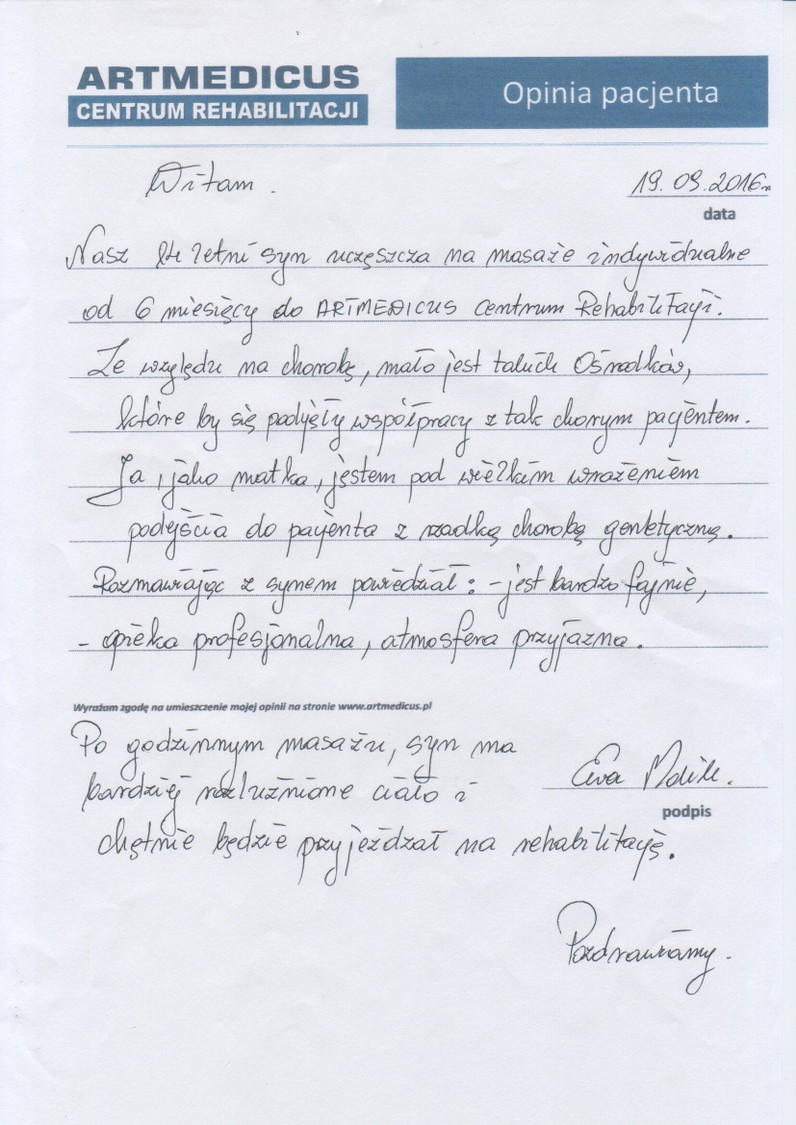 ARTMEDICUS
CENTRUM REHABILITACJI
Opinia pacjenta
Witam.
19.09.2016r.
data
Nasz 14 letni syn uczęszcza na masaże indywidualne
od 6 miesięcy do ARTMEDICUS Centrum Rehabilitacji.
Ze względu na chorobę, mało jest takich Ośrodków,
które by się podjęły współpracy z tak chorym pacjentem.
Ja, jako matka, jestem pod wielkim wrażeniem
podejścia do pacjenta z rzadką chorobą genetyczną.
Rozmawiając z synem powiedział: - jest bardzo fajnie,
- opieka profesjonalna, atmosfera przyjazna.
Wyrażam zgodę na umieszczenie mojej opinii na stronie www.artmedicus.pl
Po godzinnym masażu, syn ma
bardziej rozluźnione ciało i
chętnie będzie przyjeżdżał na rehabilitację.
Ewa
podpis
Pozdrawiamy.